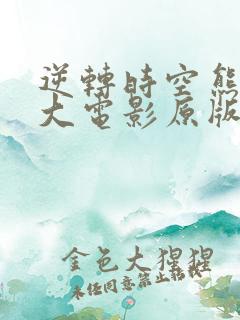 逆轉時空熊
大電影原版
金色大猩猩
未经同意禁止转载